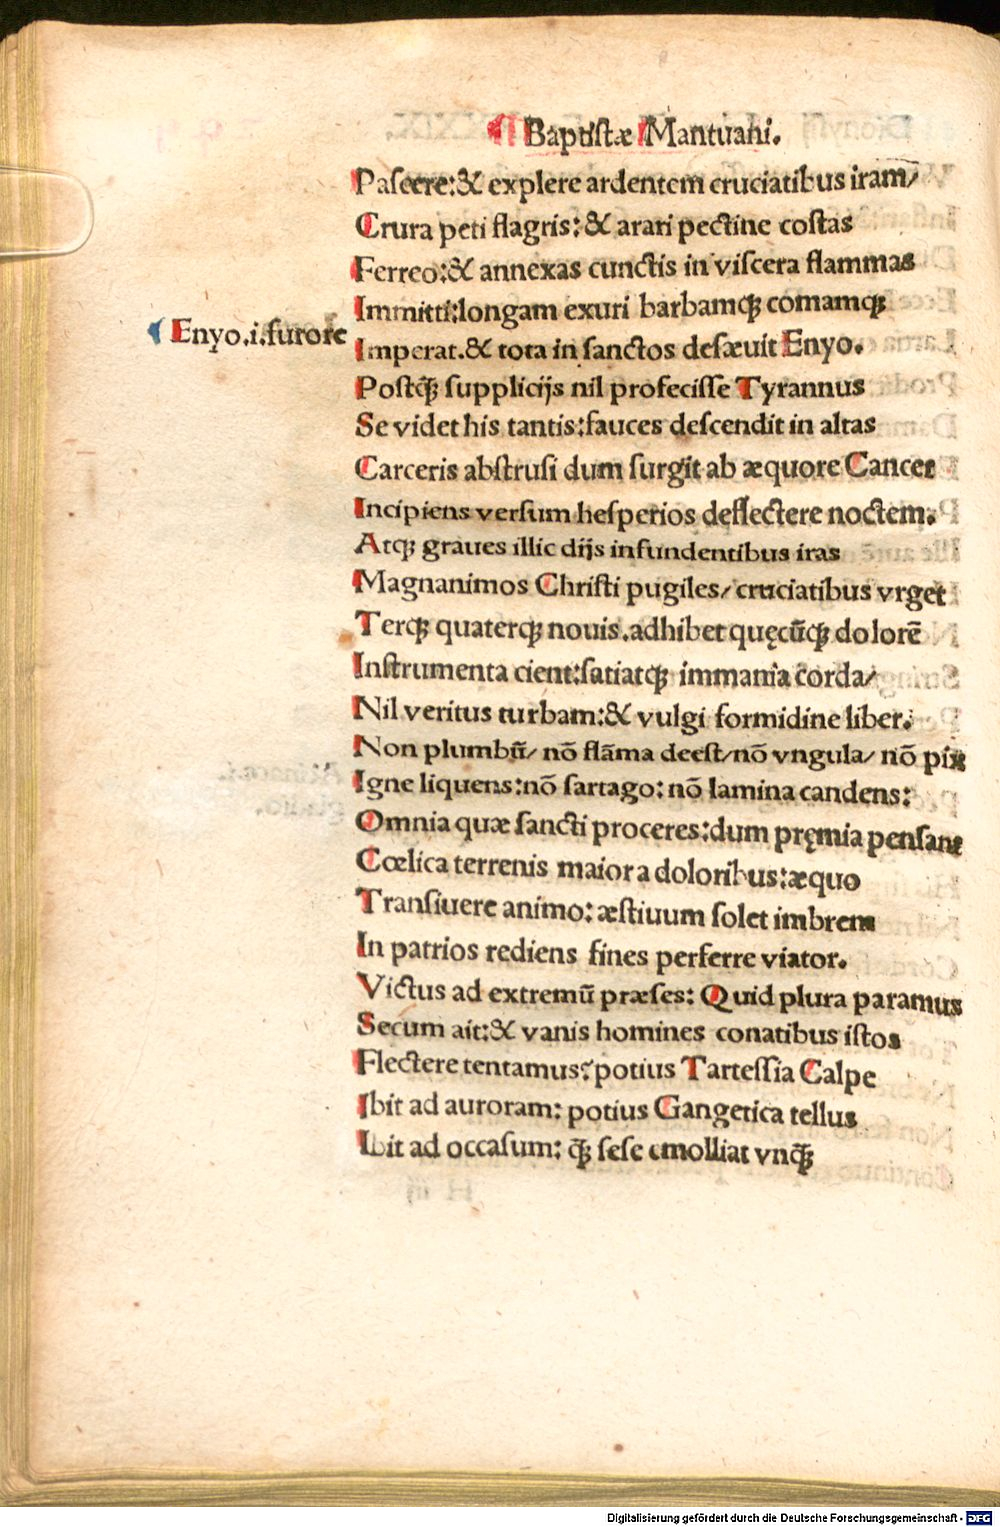 ¶ Baptistæ Mantuani.
Pascere:& explere ardentem cruciatibus iram/
Crura peti flagris:& arari pectine costas
Ferreo:& annexas cunctis in viscera flammas
Immitti:longam exuri barbamqꝫ comamqꝫ
¶ Enyo.i.furore
Imperat.& tota in sanctos desæuit Enyo.
Postqꝫ̃ supplicijs nil profecisse Tyrannus
Se videt his tantis:fauces descendit in altas
Carceris abstrusi dum surgit ab æquore Cancer
Incipiens versum hesperios deflectere noctem.
Atqꝫ graues illic dijs infundentibus iras
Magnanimos Christi pugiles/ cruciatibus vrget
Terqꝫ quaterqꝫ nouis.adhibet quęcũqꝫ dolorẽ
Instrumenta cient:satiatqꝫ immania corda/
Nil veritus turbam:& vulgi formidine liber.
Non plumbũ/ nõ flãma deest/nõ vngula/ nõ pix
Igne liquens:nõ sartago: nõ lamina candens:
Omnia quæ sancti proceres:dum pręmia pensant
Cœlica terrenis maiora doloribus:æquo
Transiuere animo: æstiuum solet imbrem
In patrios rediens fines perferre viator.
Victus ad extremũ præses: Quid plura paramus
Secum ait:& vanis homines conatibus istos
Flectere tentamus? potius Tartessia Calpe
Ibit ad auroram: potius Gangetica tellus
Ibit ad occasum: qꝫ̃ sese emolliat vnqꝫ̃
Digitalisierung gefördert durch die Deutsche Forschungsgemeinschaft - DFG